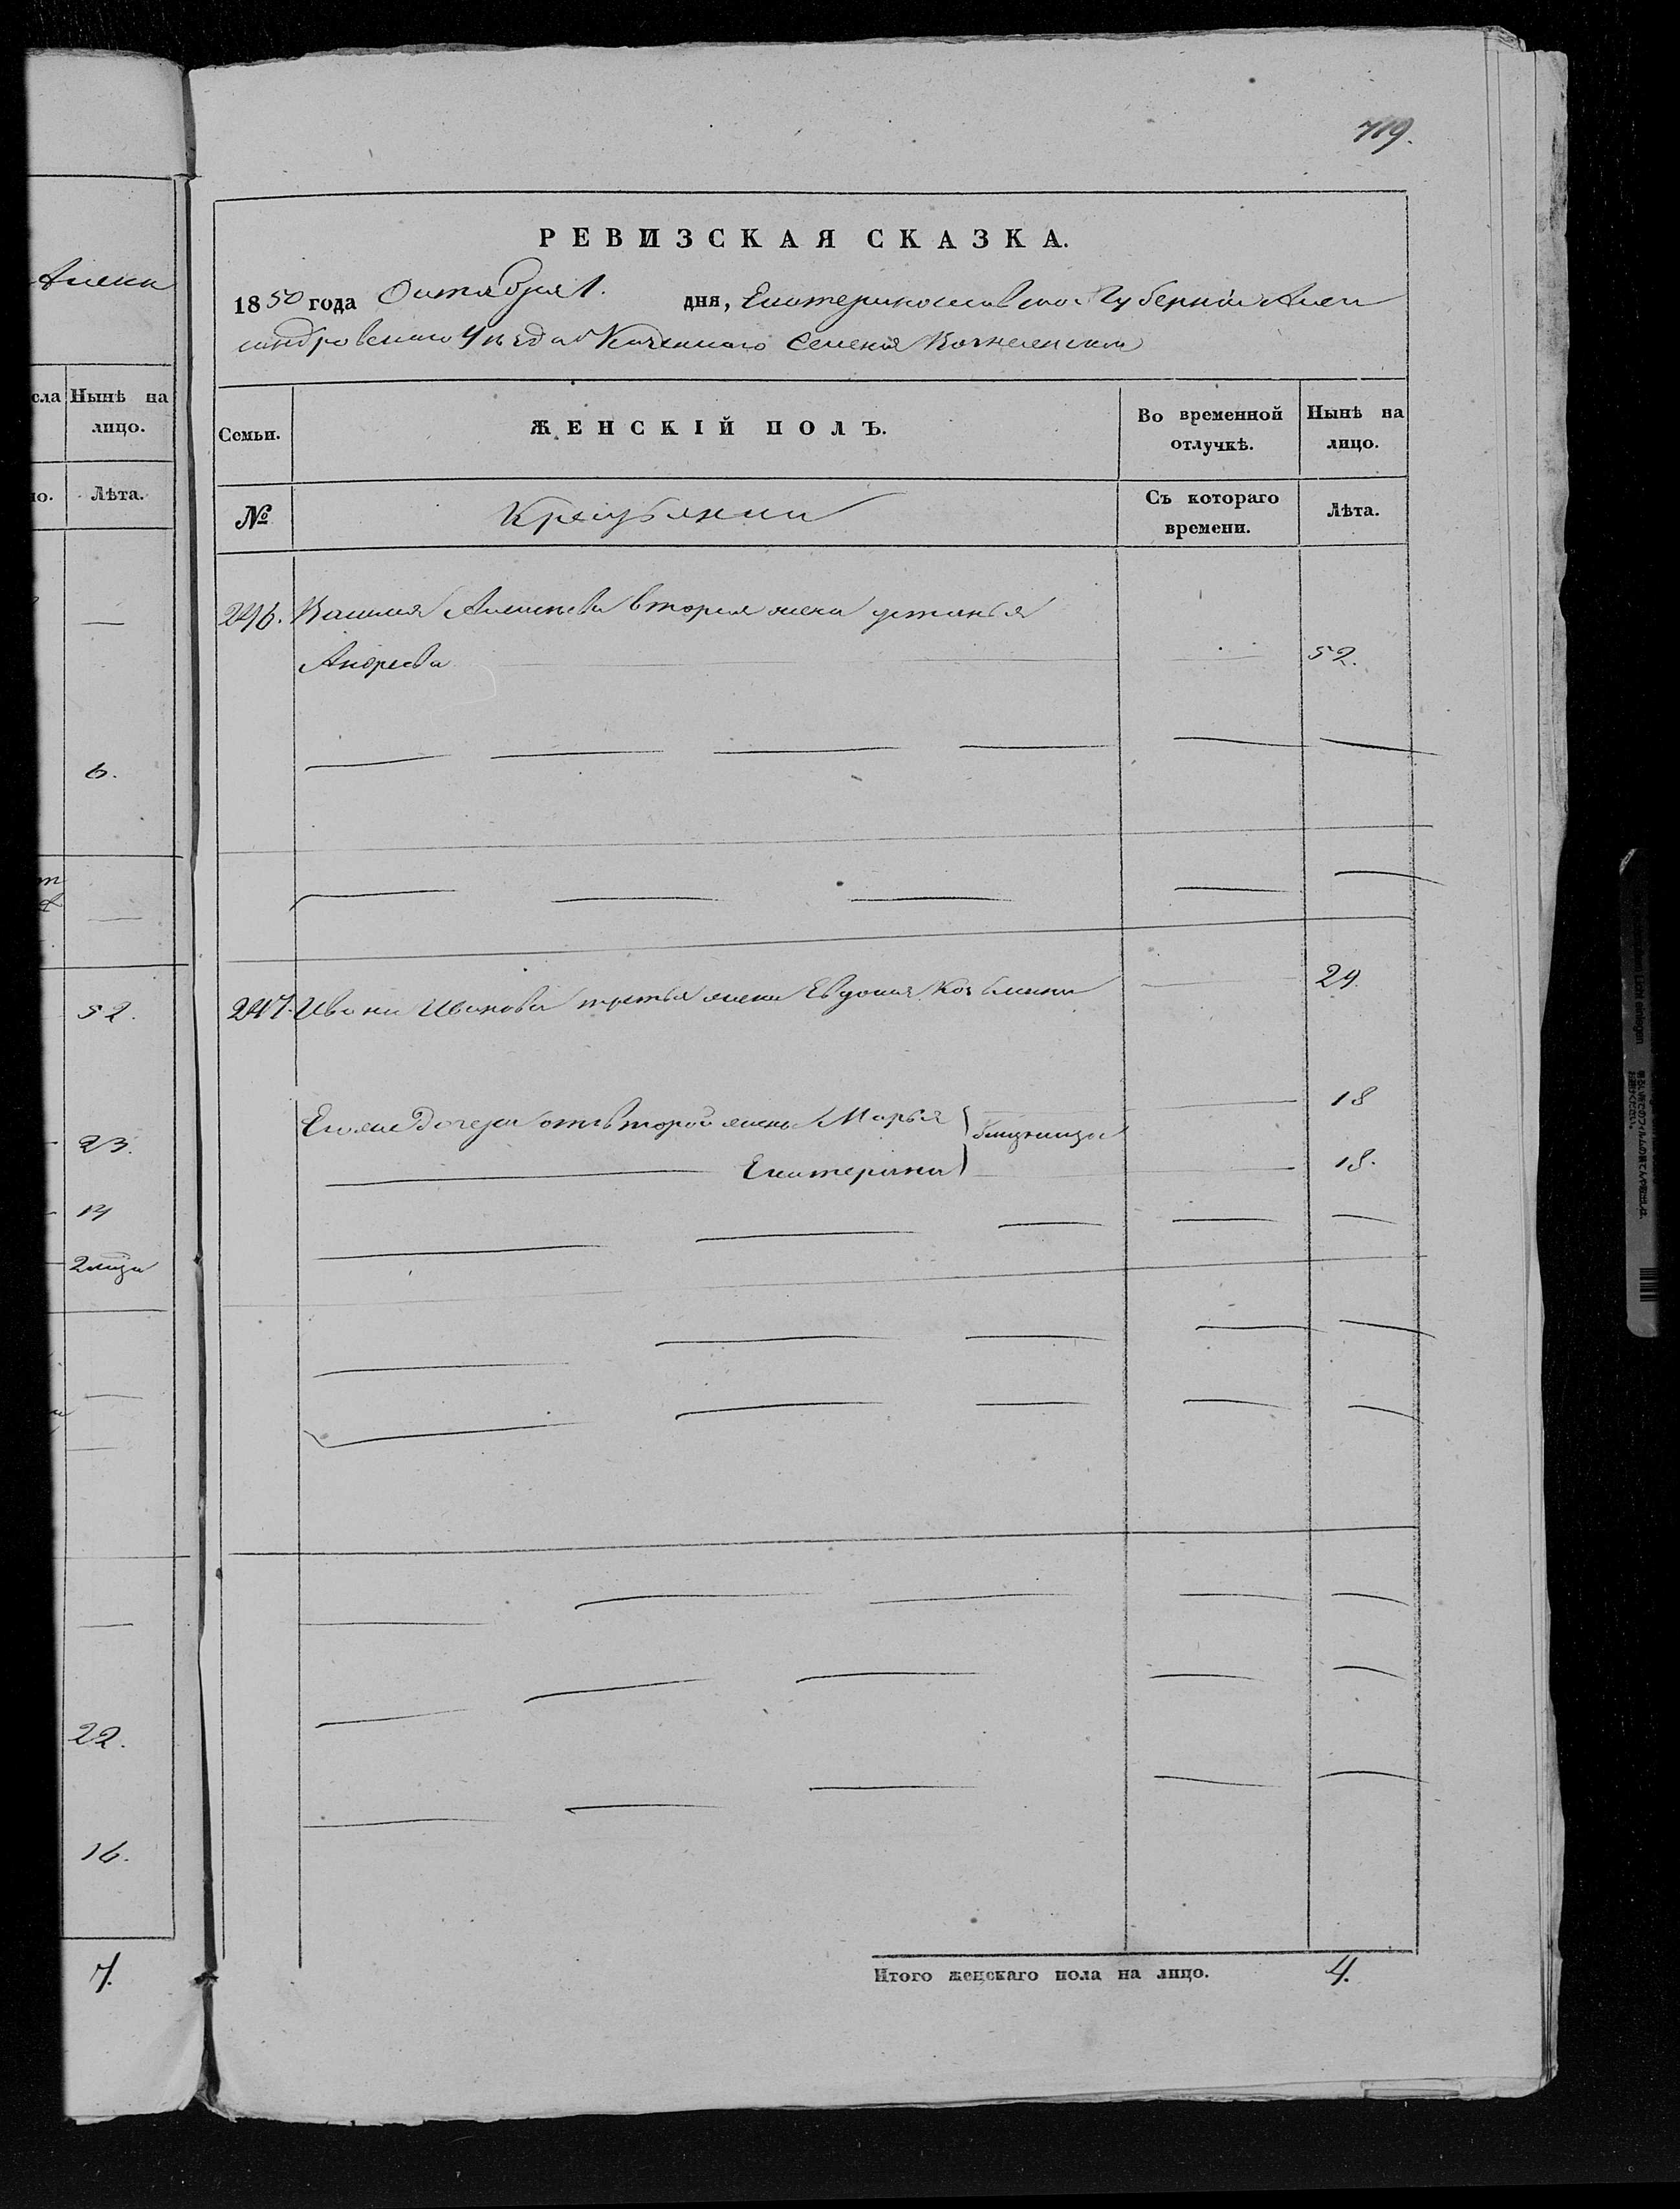 719.
РЕВИЗСКАЯ СКАЗКА.
1850 года Октября 1. дня, Екатеринославской Губерніи Алек
сандровскаго Уѣзда Казеннаго Селенія
Семьи. ЖЕНСКІЙ ПОЛЪ. Во временной отлучкѣ. Нынѣ на лицо.
№ Крестьянки Съ котораго времени. Лѣта.
246. Василія Алексѣева вторая жена Устинья
Андреева 52.
247. Ивана Иванова третья жена Евдокія Козьмина 29.
Егоже Дочери отъ второй жены Марья близницы 18
Екатерина 18.
Итого женскаго пола на лицо. 4.
Алекс
сла Нынѣ на
лицо.
но. Лѣта.
6.
52.
23.
14
22.
16.
7.